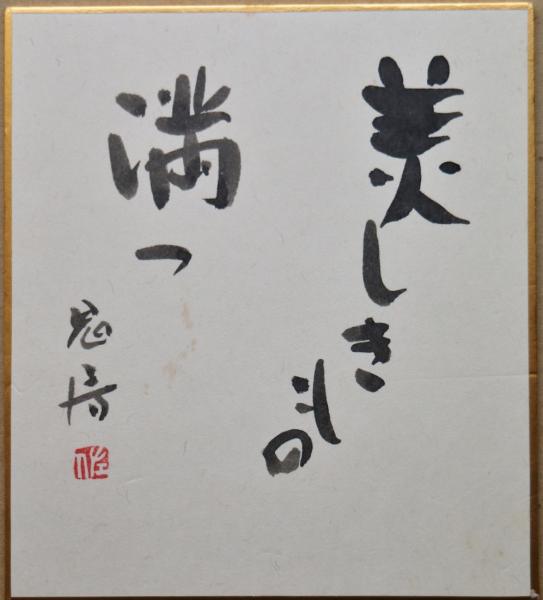 美しきもの
満つ